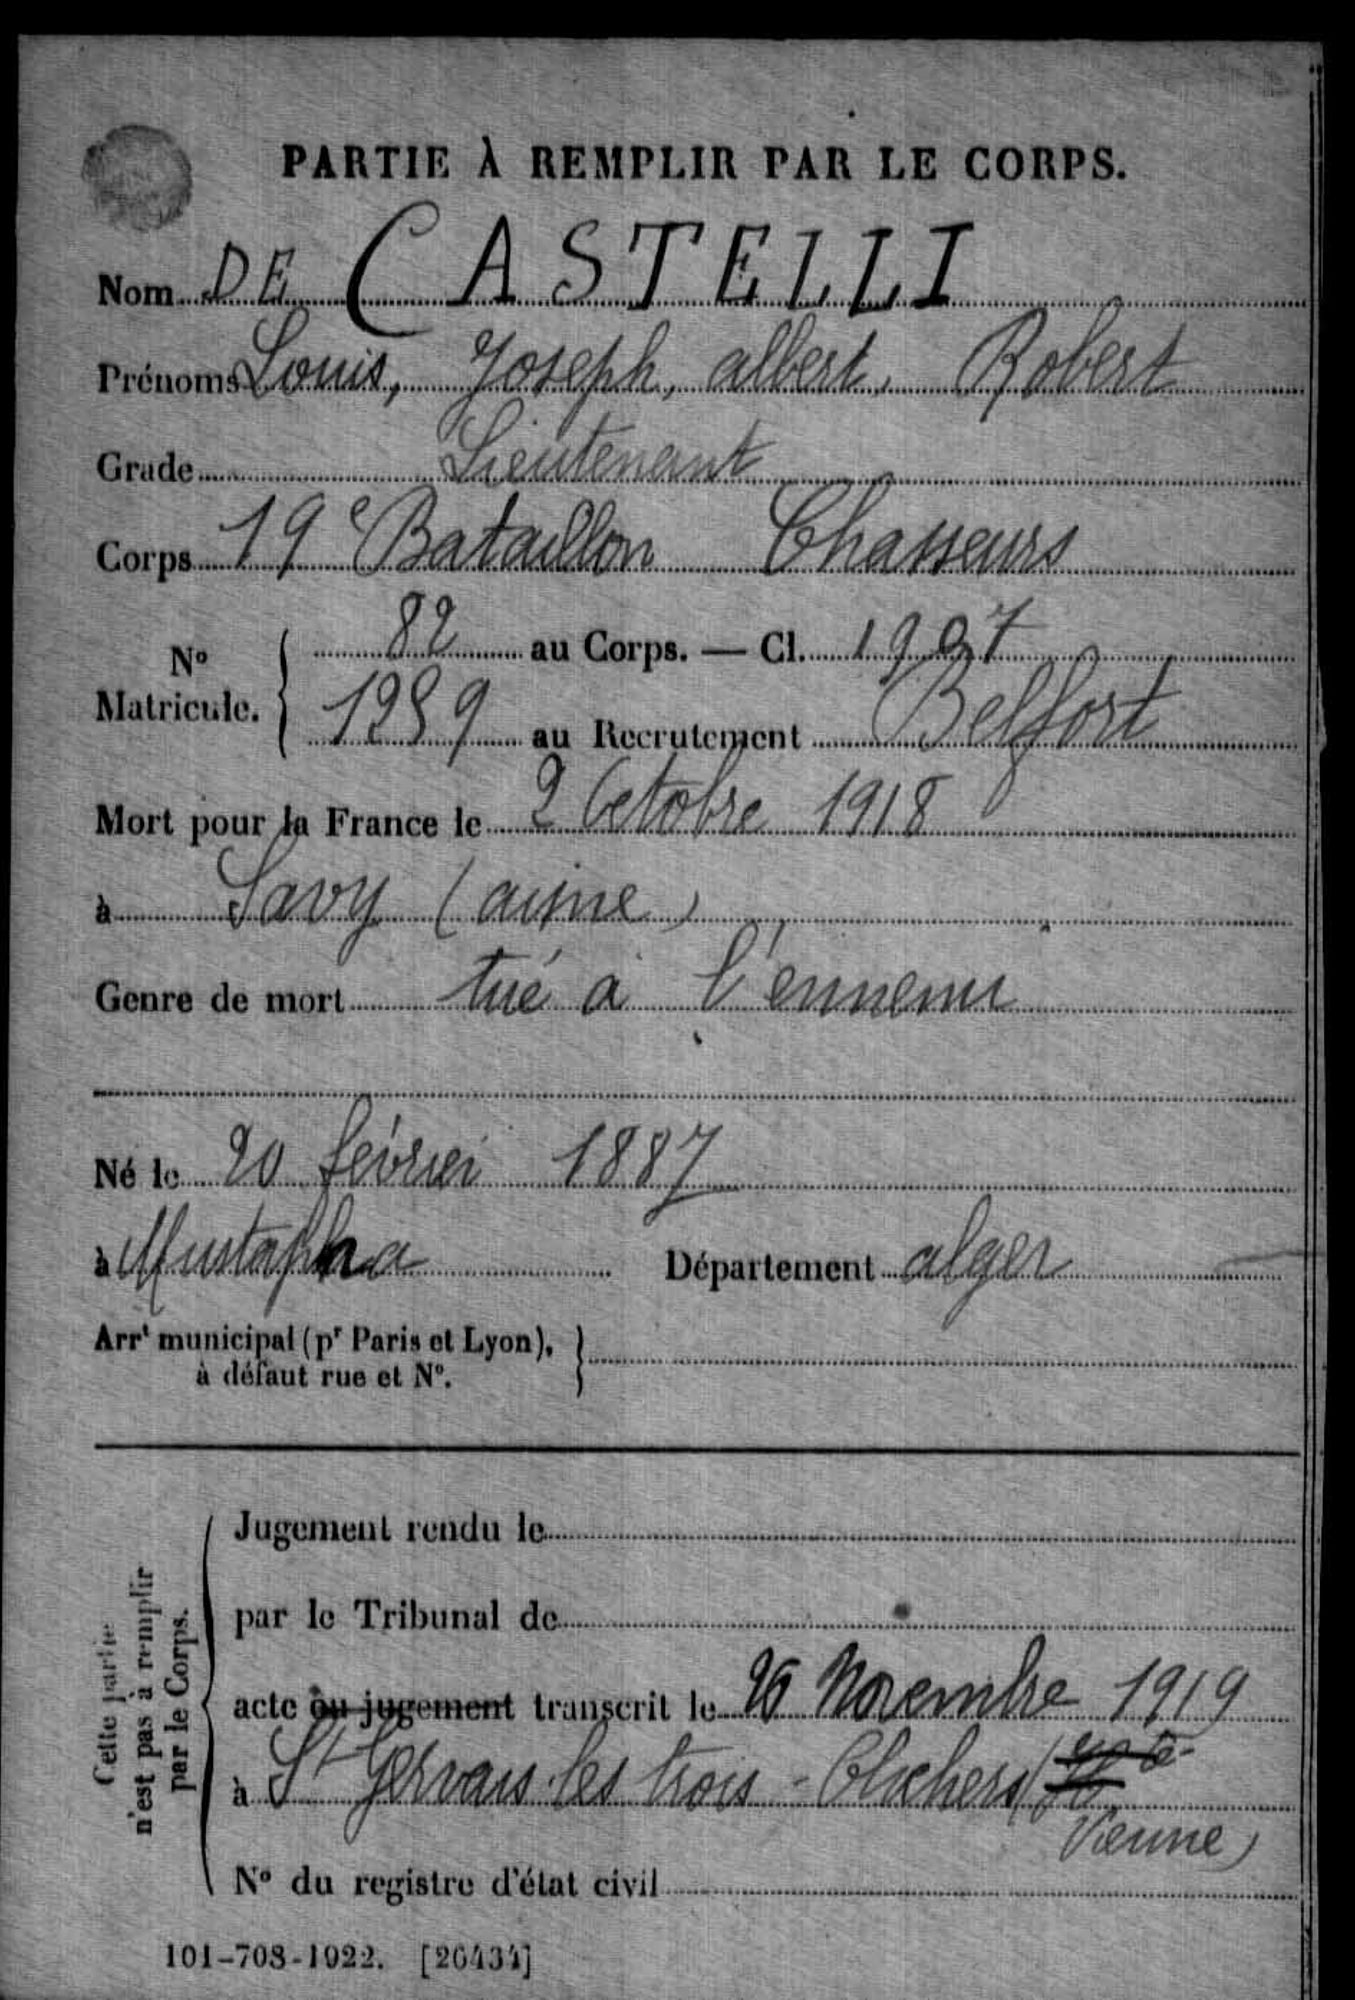 PARTIE À REMPLIR PAR LE CORPS.
Nom DE CASTELLI
Prénoms Louis, Joseph, albert, Robert
Grade Lieutenant
Corps 19e Bataillon Chasseurs
No Matricule. { 82 au Corps. — Cl. 1907
1289 au Recrutement Belfort
Mort pour la France le 2 Octobre 1918
à Savy (aisne)
Genre de mort tué à l'ennemi
Né le 20 février 1887
à Mustapha Département alger
Arrt municipal (pr Paris et Lyon), }
à défaut rue et No.
Cette partie
n'est pas à remplir
par le Corps.
Jugement rendu le
par le Tribunal de
acte ou jugement transcrit le 26 Novembre 1919
à St Gervais les trois - Clochers (
Vienne)
No du registre d'état civil
101-708-1922. [26434]